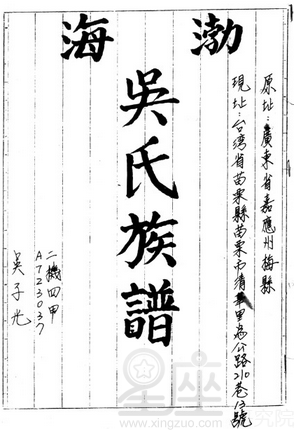 渤海
原址:廣東省嘉應州梅縣
現址:台湾省苗栗縣苗栗市清華里為公路210巷12號
吳氏族譜
二機四甲
A7723037
吳子光
星座